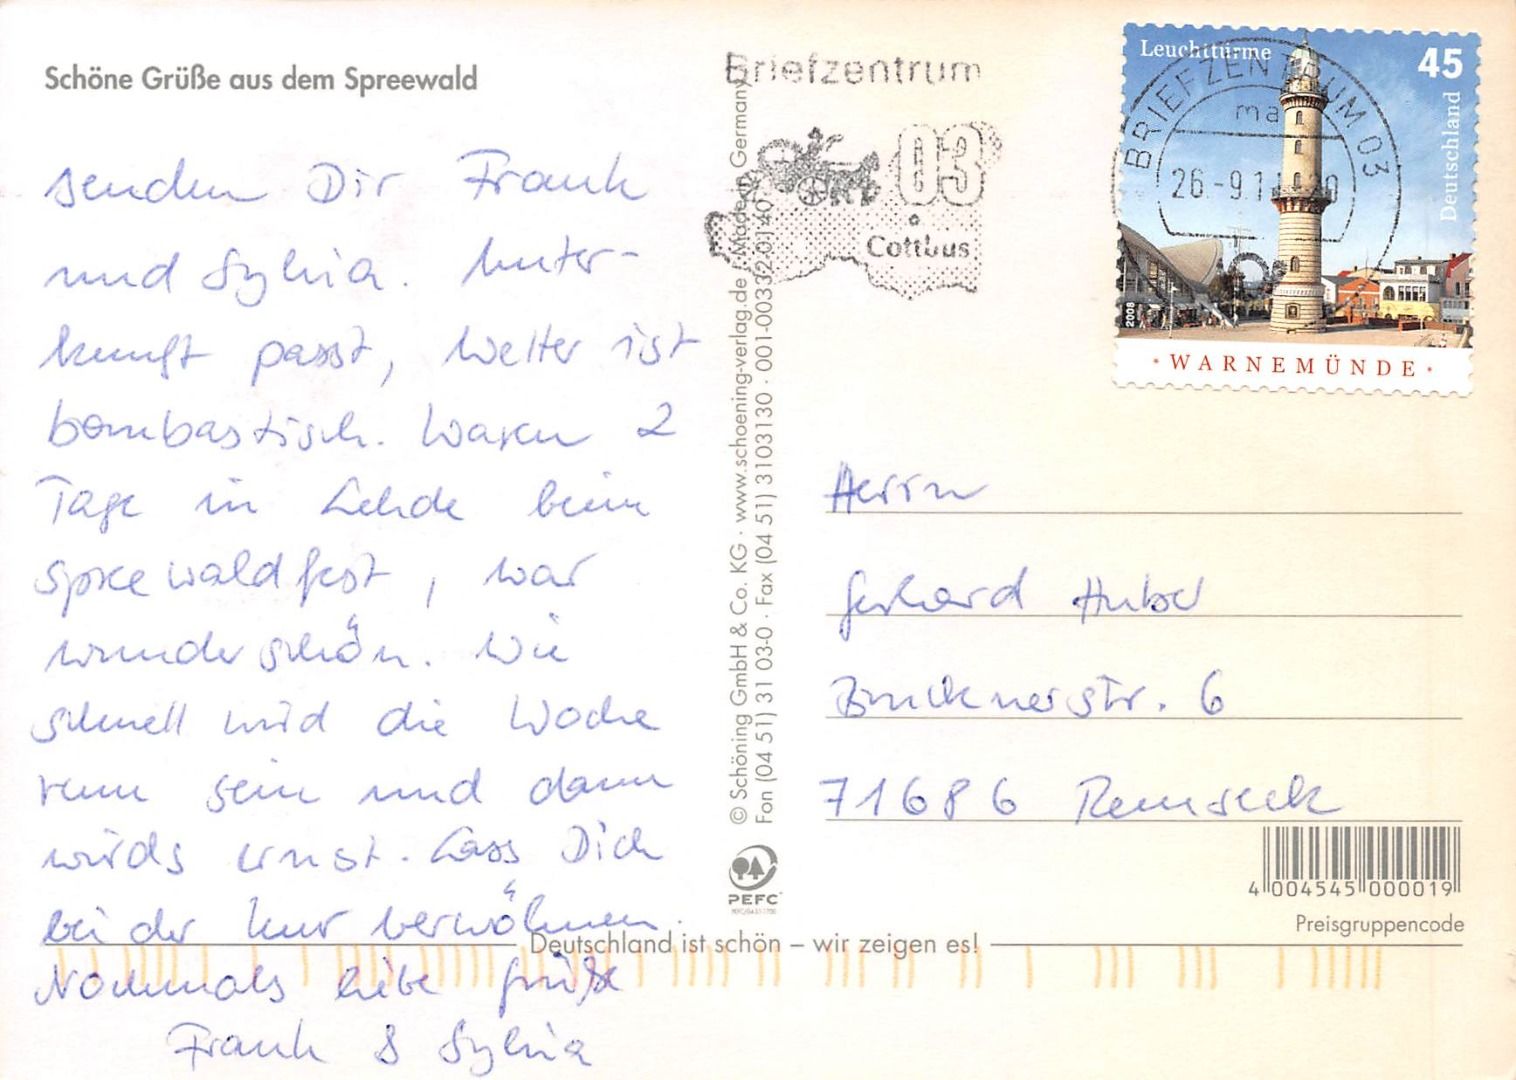 Schöne Grüße aus dem Spreewald
senden Dir Frank
und Sylvia. Unter-
kunft passt, Wetter ist
bombastisch. Waren 2
Tage in Lehde beim
Spreewaldfest, war
wunderschön. Wie
schnell wird die Woche
rum sein und dann
wirds ernst. Lass Dich
bei der Kur verwöhnen.
Nochmals liebe Grüße
Frank & Sylvia
© Schöning GmbH & Co. KG · www.schoening-verlag.de / Made in Germany
Fon (04 51) 31 03-0 · Fax (04 51) 3103130 · 001-00332
PEFC
Deutschland ist schön – wir zeigen es!
Briefzentrum
03
Cottbus
Leuchttürme
45
Deutschland
2008
WARNEMÜNDE
BRIEFZENTRUM 03
ma
26.-9.1
Herrn
Gerhard Huber
Brucknerstr. 6
71686 Remseck
4 004545 000019
Preisgruppencode